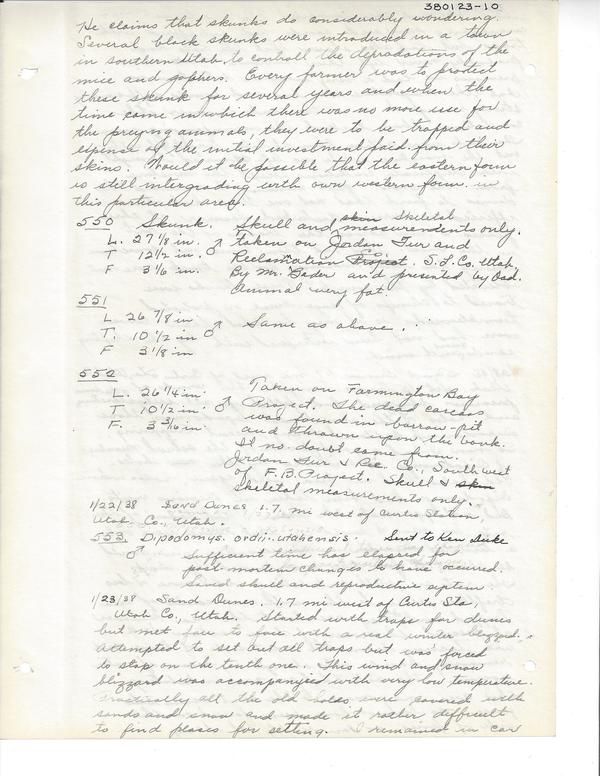 380123-10
He claims that skunks do considerably wondering.
Several black skunks were introduced in a town
in southern Utah, to controll the depradations of the
mice and gophers. Every farmer was to protect
these skunk for several years and when the
time came in which there was no more use for
the preying animals, they were to be trapped and
expense of the initial investment paid from their
skins. Would it be possible that the eastern form
is still intergrading with own western form in
this particular area.
550 Skunk. Skull and skin skeletal
L. 27 1/8 in. ♂ measurements only.
T 12 1/2 in. taken on Jordan Fur and
F. 3 1/16 in. Reclamation Project. S.L. Co. Utah.
By Mr. Gader and presented by Dad.
Animal very fat.
551
L 26 7/8 in
T. 10 1/2 in ♂ Same as above.
F 3 1/8 in
552
L. 26 1/4 in. Taken on Farmington Bay
T 10 1/2 in ♂ Project. The dead carcass
F. 3 3/16 in. was found in barrow-pit
and thrown upon the bank.
It no doubt came from
Jordan Fur & Rec. Co., Southwest
of F.B. Project. Skull & skin
skeletal measurements only.
1/22/38 Sand Dunes 1.7 mi west of Curtis Station,
Utah Co., Utah.
553. Dipodomys ordii utahensis. Sent to Ken Duke
♂ Sufficient time has elapsed for
post mortem changes to have occurred.
Saved skull and reproductive system.
1/23/38 Sand Dunes. 1.7 mi west of Curtis Sta,
Utah Co., Utah. Started with traps for dunes
but met face to face with a real winter blizzard.
Attempted to set out all traps but was forced
to stop on the tenth one. This wind and snow
blizzard was accompanyied with very low temperature.
Practically all the old holes were covered with
sand and snow and made it rather difficult
to find places for setting. I remained in car